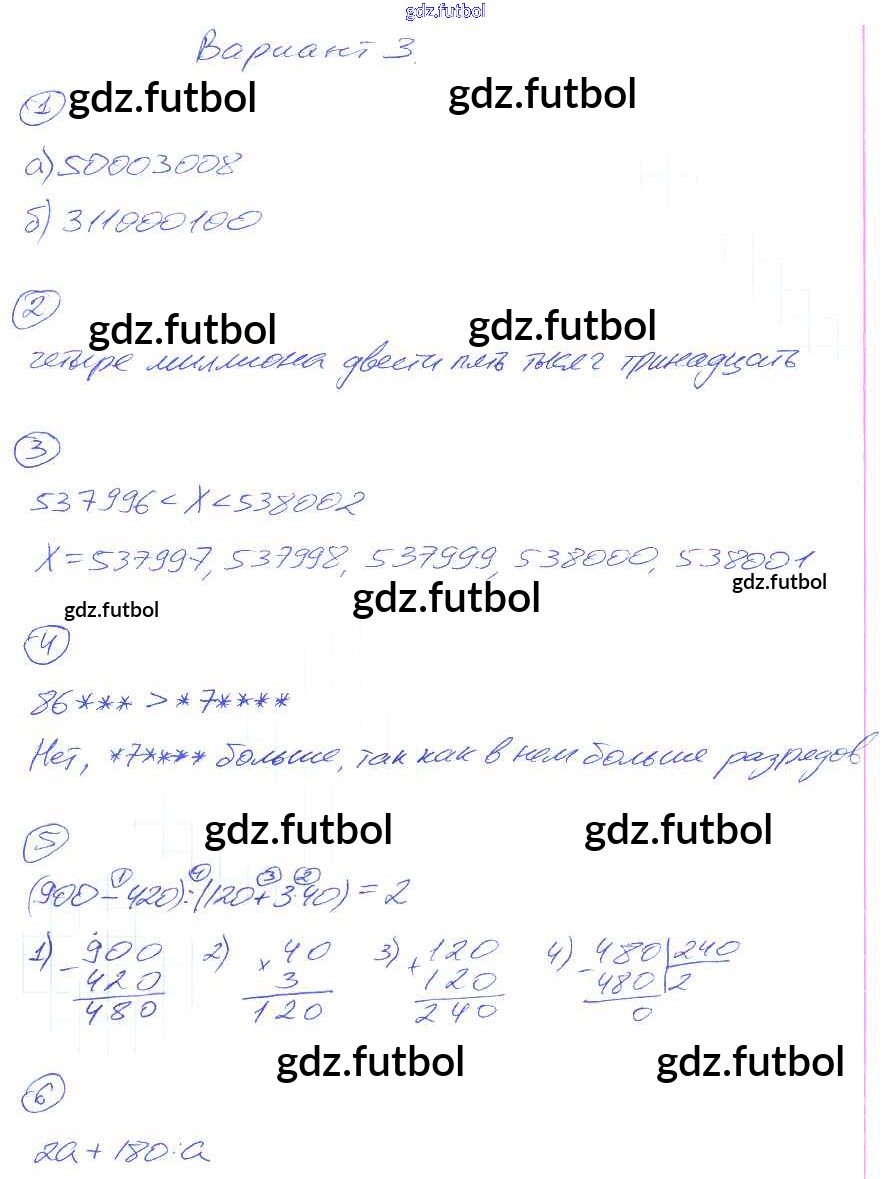 gdz.futbol
Вариант 3.
1 gdz.futbol gdz.futbol
а) 50003008
б) 311000100
2
gdz.futbol gdz.futbol
четыре миллиона двести пять тысяч тринадцать
3
537996 < X < 538002
X = 537997, 537998, 537999, 538000, 538001
gdz.futbol gdz.futbol gdz.futbol
4
86*** > *7****
Нет, *7**** больше, так как в нем больше разрядов
5 gdz.futbol gdz.futbol
1 4 3 2
(900 - 420) : (120 + 3·40) = 2
1) - 900 2) × 40 3) + 120 4) - 480 | 240
420 3 120 480 | 2
480 120 240 0
gdz.futbol gdz.futbol
6
2a + 180 : a